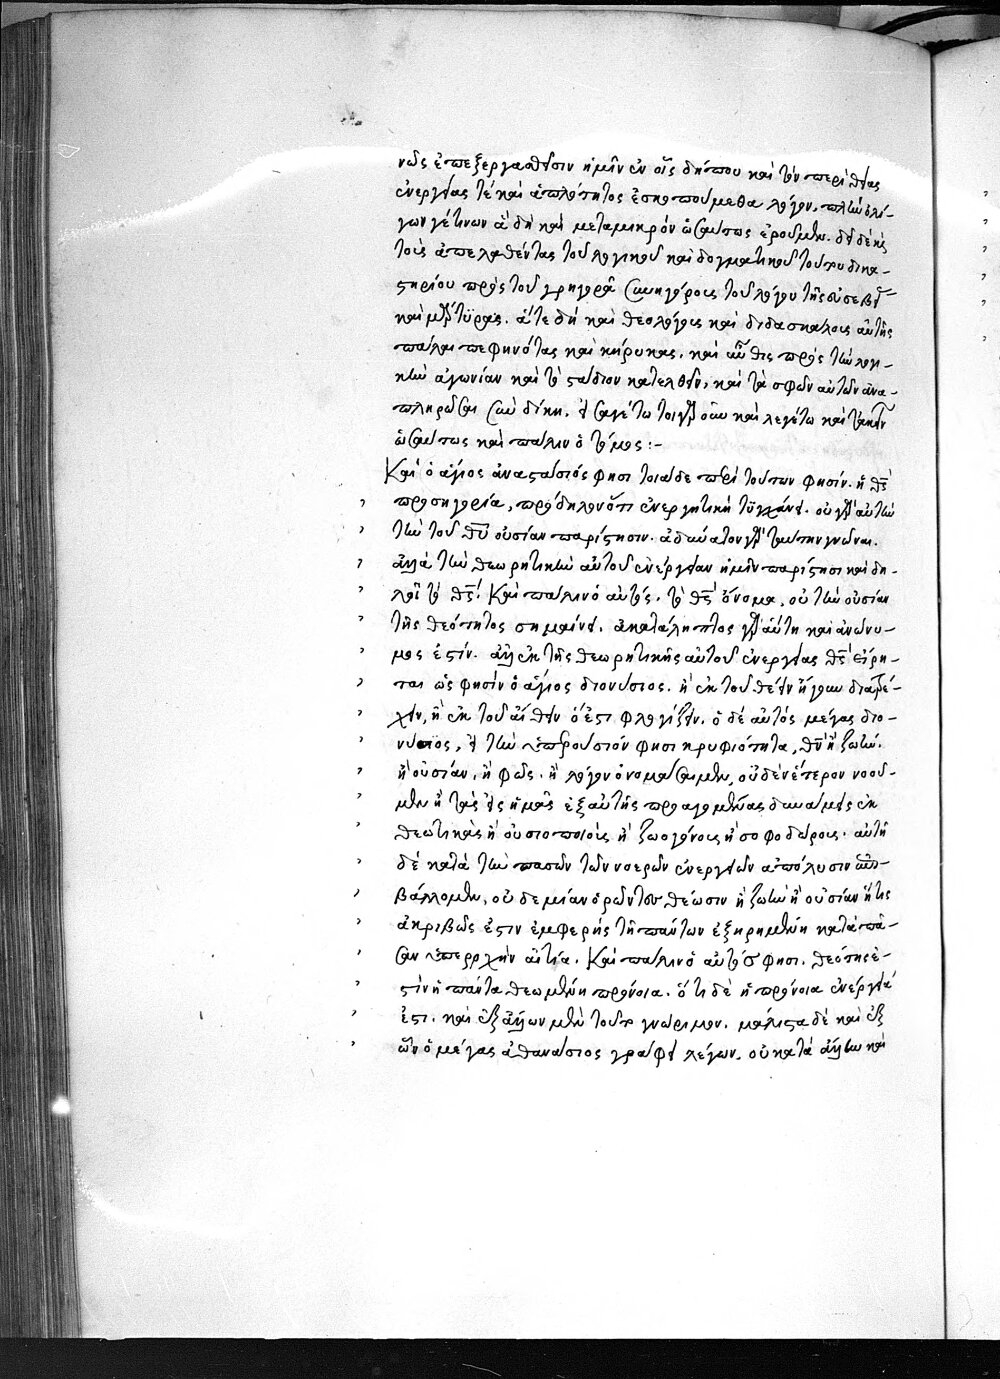 νῶς ἐπεξεργασθεῖσιν ἡμῖν ἐν οἷς δήπου καὶ τὸν περὶ θείας
ἐνεργείας τὲ καὶ ἁπλότητος ἐσκοπούμεθα λόγον, πλὴν ὀλί-
γων γέ τινων ἃ δὴ καὶ μεταμικρὸν ὡσαύτως ἐροῦμεν.
τοὺς ἀπελαθέντας τοῦ λογικοῦ καὶ δογματικοῦ τουτουῒ δικα-
στηρίου πρὸς τοῦ γρηγορᾶ συνηγόρους τοῦ λόγου τῆς εὐσεβεί-
καὶ μάρτυρας. ἅτε δὴ καὶ θεολόγους καὶ διδασκάλους αὐτῆς
πάλαι πεφηνότας καὶ κήρυκας. καὶ αὖθις πρὸς τὴν λογι-
κὴν ἀγωνίαν καὶ τὸ στάδιον κατελθεῖν, καὶ τὰ σφῶν αὐτῶν ἀνα-
πληρῶσαι σὺν δίκῃ. εἰσαγέτω τοιγαροῦν καὶ λεγέτω
ὡσαύτως καὶ πάλιν ὁ τόμος:-
Καὶ ὁ ἅγιος ἀναστάσιός φησι τοιάδε περὶ τούτων φησίν. ἡ θς
προσηγορία, πρόδηλον ὅτι ἐνεργητικὴ τυγχάνει. οὐ γὰρ αὐτὴν
τὴν τοῦ θυ οὐσίαν παρίστησιν. ἀδύνατον γὰρ ταύτην γνῶναι.
ἀλλὰ τὴν θεωρητικὴν αὐτοῦ ἐνέργειαν ἡμῖν παρίστησι καὶ δη-
λοῖ τὸ θς. Καὶ πάλιν ὁ αὐτός. τὸ θς ὄνομα, οὐ τὴν οὐσίαν
τῆς θεότητος σημαίνει. ἀκατάληπτος γὰρ αὕτη καὶ ἀνώνυ-
μος ἐστίν. ἀλλ' ἐκ τῆς θεωρητικῆς αὐτοῦ ἐνεργείας θς εἴρη-
ται ὥς φησιν ὁ ἅγιος διονύσιος. ἢ ἐκ τοῦ θέειν ἤγουν διατρέ-
χειν, ἢ ἐκ τοῦ αἴθειν ὅ ἐστι φλογίζειν. ὁ δὲ αὐτὸς μέγας διο-
νύσιος, εἰ τὴν ὑπερούσιόν φησι κρυφιότητα, θν ἢ ζωήν.
ἢ οὐσίαν, ἢ φῶς. ἢ λόγον ὀνομάσαιμεν, οὐδὲν ἕτερον νοοῦ-
μεν ἢ τὰς εἰς ἡμᾶς ἐξ αὐτῆς προαγομένας δυνάμεις ἐκ
θεωτικὰς ἢ οὐσιοποιοὺς ἢ ζωογόνους ἢ σοφοδώρους. αὐτῇ
δὲ κατὰ τὴν πασῶν τῶν νοερῶν ἐνεργειῶν ἀπόλυσιν ἐπι-
βάλλομεν, οὐδεμίαν ὁρῶντες θέωσιν ἢ ζωὴν ἢ οὐσίαν ἥτις
ἀκριβῶς ἐστιν ἐμφερὴς τῇ πάντων ἐξηρημένῃ κατὰ πᾶ-
σαν ὑπεροχὴν αἰτίᾳ. Καὶ πάλιν ὁ αὐτός φησι. θεότης ἐ-
στὶν ἡ πάντα θεωμένη πρόνοια. ὅτι δὲ ἡ πρόνοια ἐνέργειά
ἐστι. καὶ ἐξ ἄλλων μὲν τοῦτο γνώριμον. μάλιστα δὲ καὶ ἐξ
ὧν ὁ μέγας ἀθανάσιος γράφει λέγων. οὐ κατὰ ἄλλην καὶ